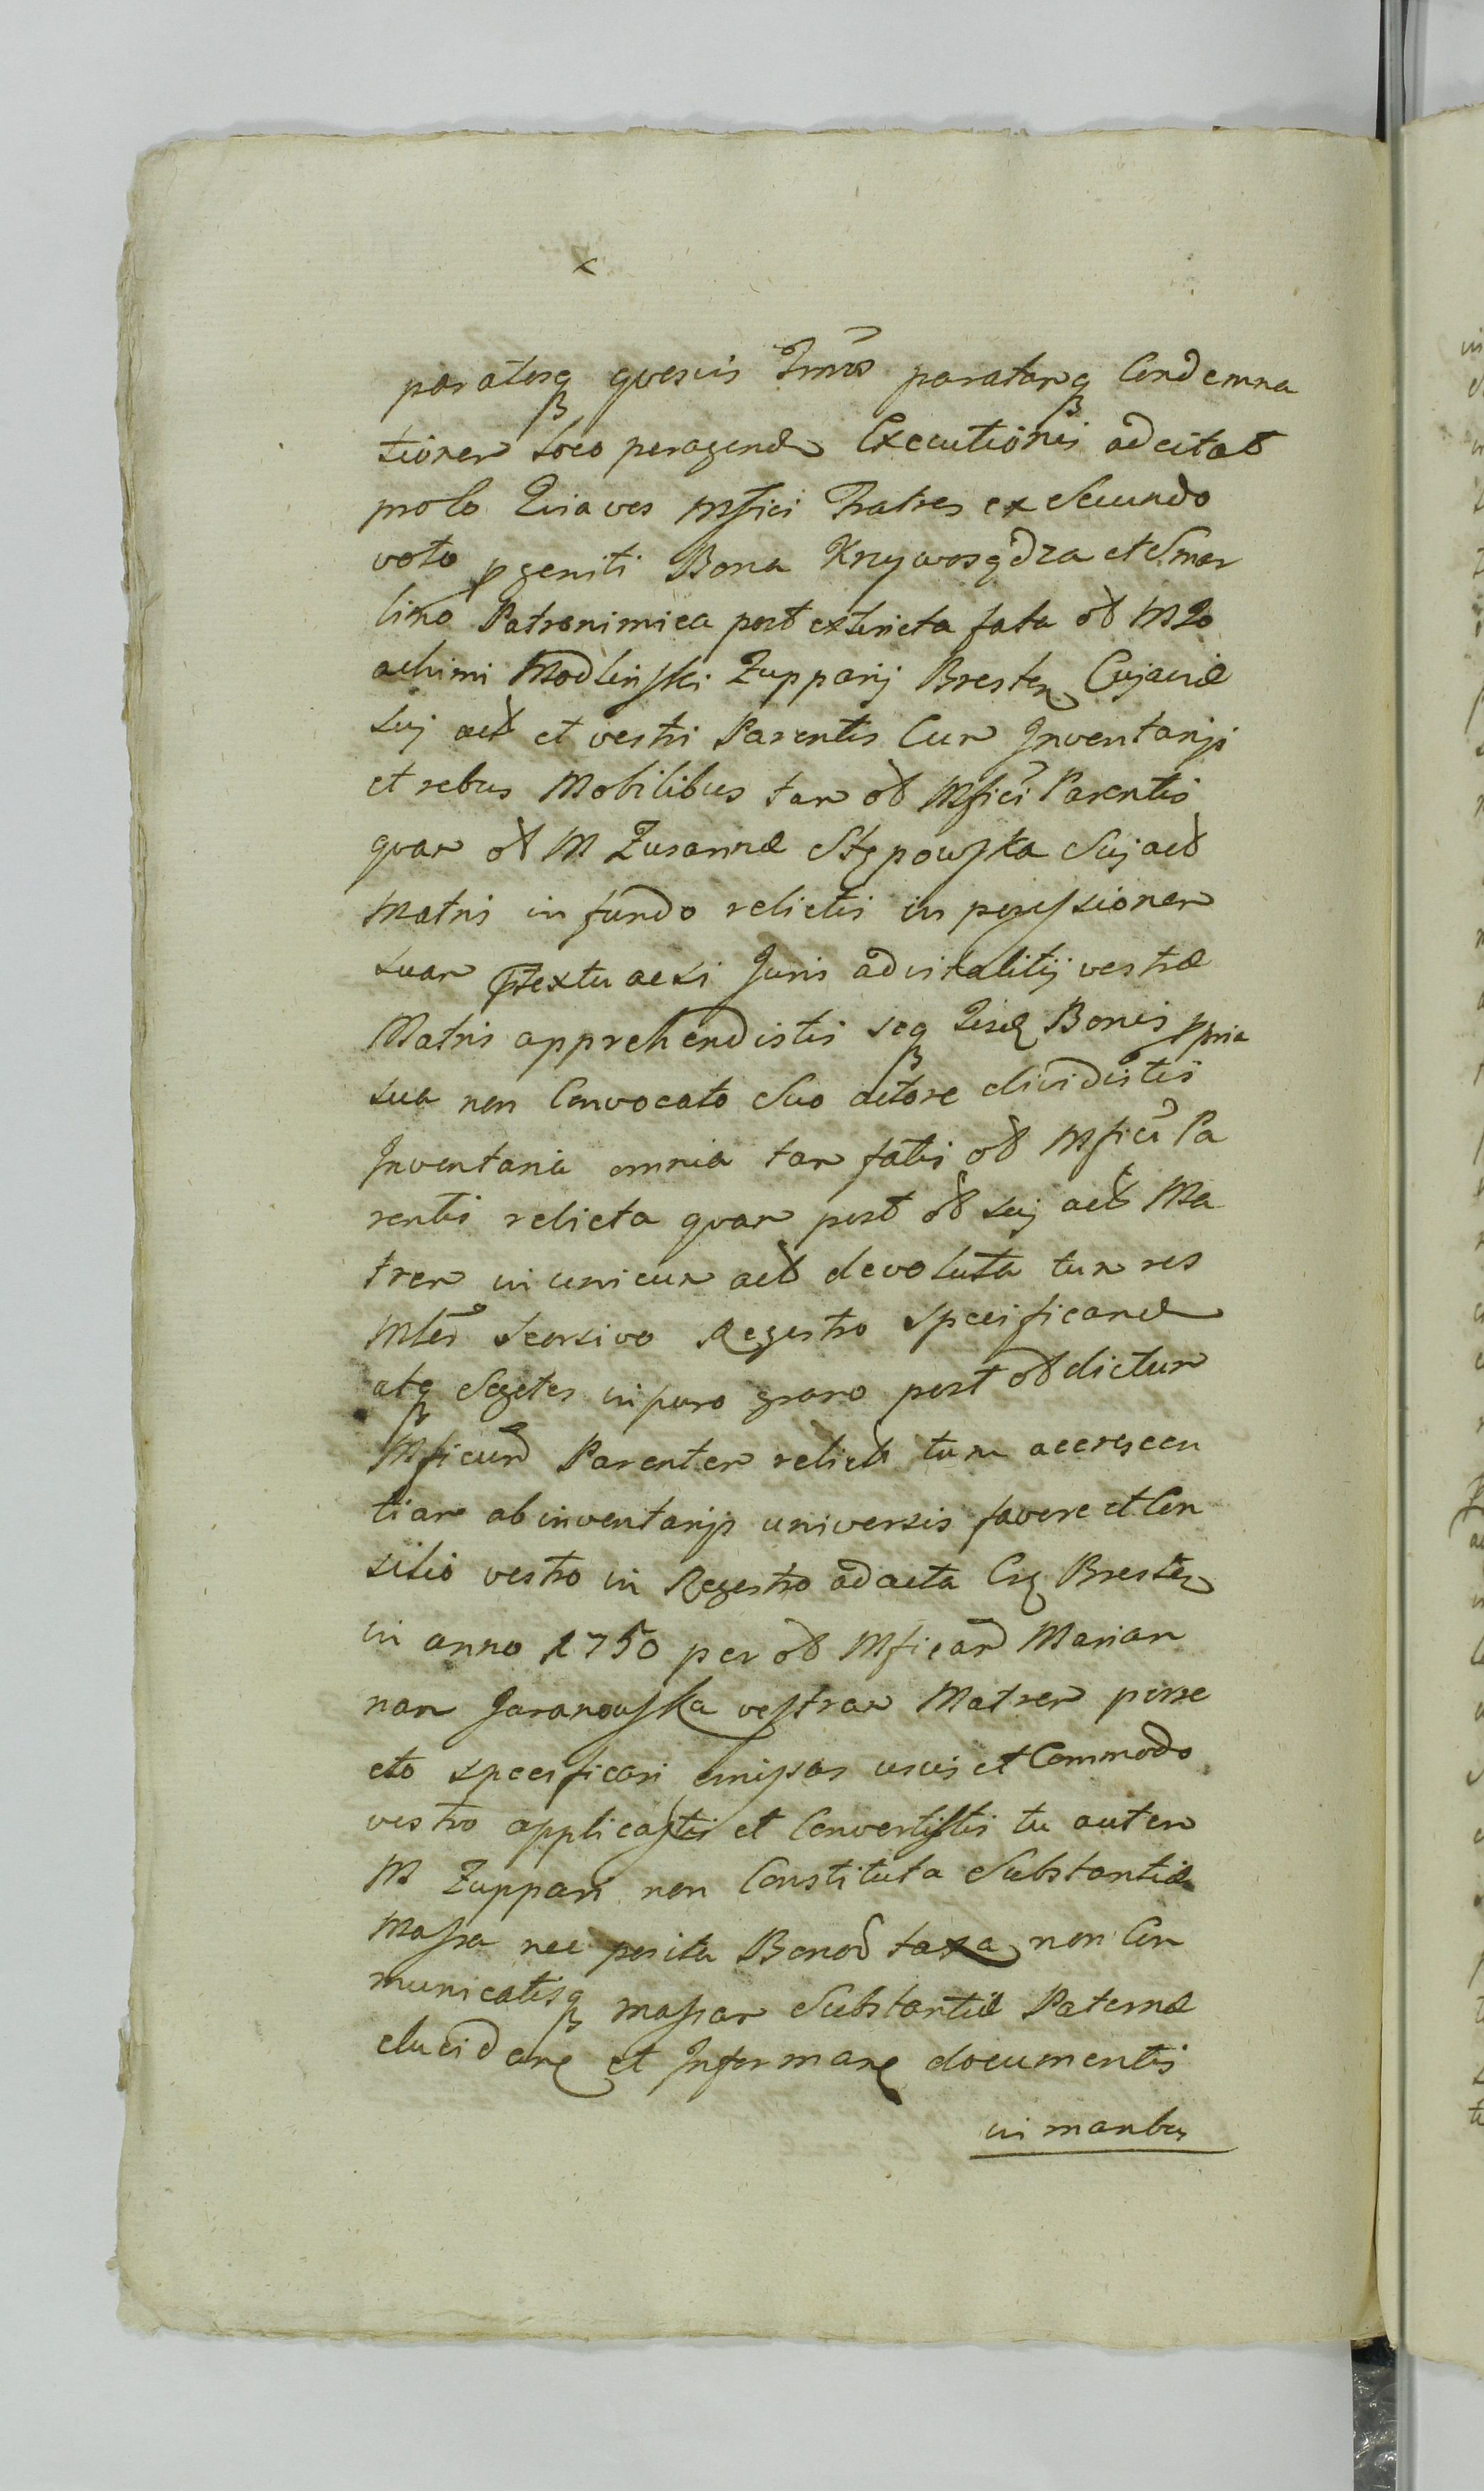 x
paratasq quesivis Tmos paratamq Condemna
tionem loco peragendæ Executionis adcitat
prolo Quia vos Mfici Fratres ex Secundo
voto pgeniti Bona Krzywosądza et Smar
lino Patronimica post extincta fata ol M Jo
achimi Modlinski Zupparij Bresten Cujaviæ
sui act et vestri Parentis Cum Inventarijs
et rebus Mobilibus tam ol Mfici Parentis
quam ol M Zusannæ Stępowska Sui act
Matris in fundo relictis in possessionem
suam prætextu acsi Juris advitalitij vestræ
Matris apprehendistis seq iisd Bonis ppria
sua non Convocato Suo actore dividistis
Inventaria omnia tam fatis ol Mfici Pa
rentis relicta quam post ol sui act Ma
trem in unicum act devoluta tum res
Mles Seorsivo Regestro Specificand
atq Segetes in puro grano post ol dictum
Mficum Parentem relict tum accrescen
tiam ab inventarijs universis favore et Con
silio vestro in Regestro ad acta Crs Bresten
in anno 1750 per ol Mficam Marian
nam Jaranowska vestram Matrem porre
cto specificari omissas usui et Commodo
vestro applicastis et Convertistis tu autem
M Zuppari non Constituta Substantiæ
Massa nec posita Bonor taxa non Com
municatisq massam Substantiæ Paternæ
elucidare et Informare documentis
in manbus